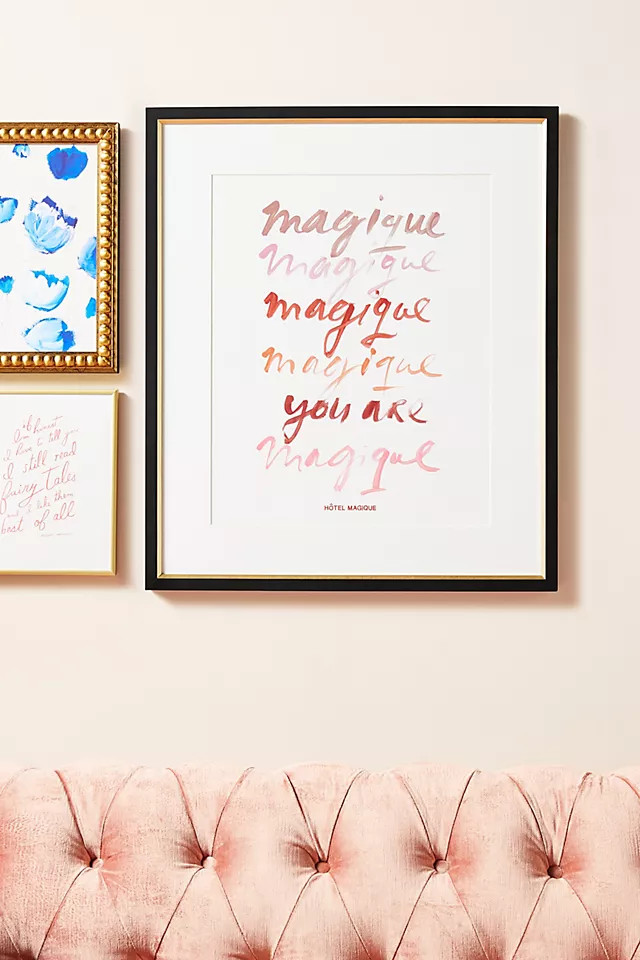 magique
magique
magique
magique
you are
magique
HÔTEL MAGIQUE
to be honest
I have to tell you
I still read
fairy tales
and I like them
best of all